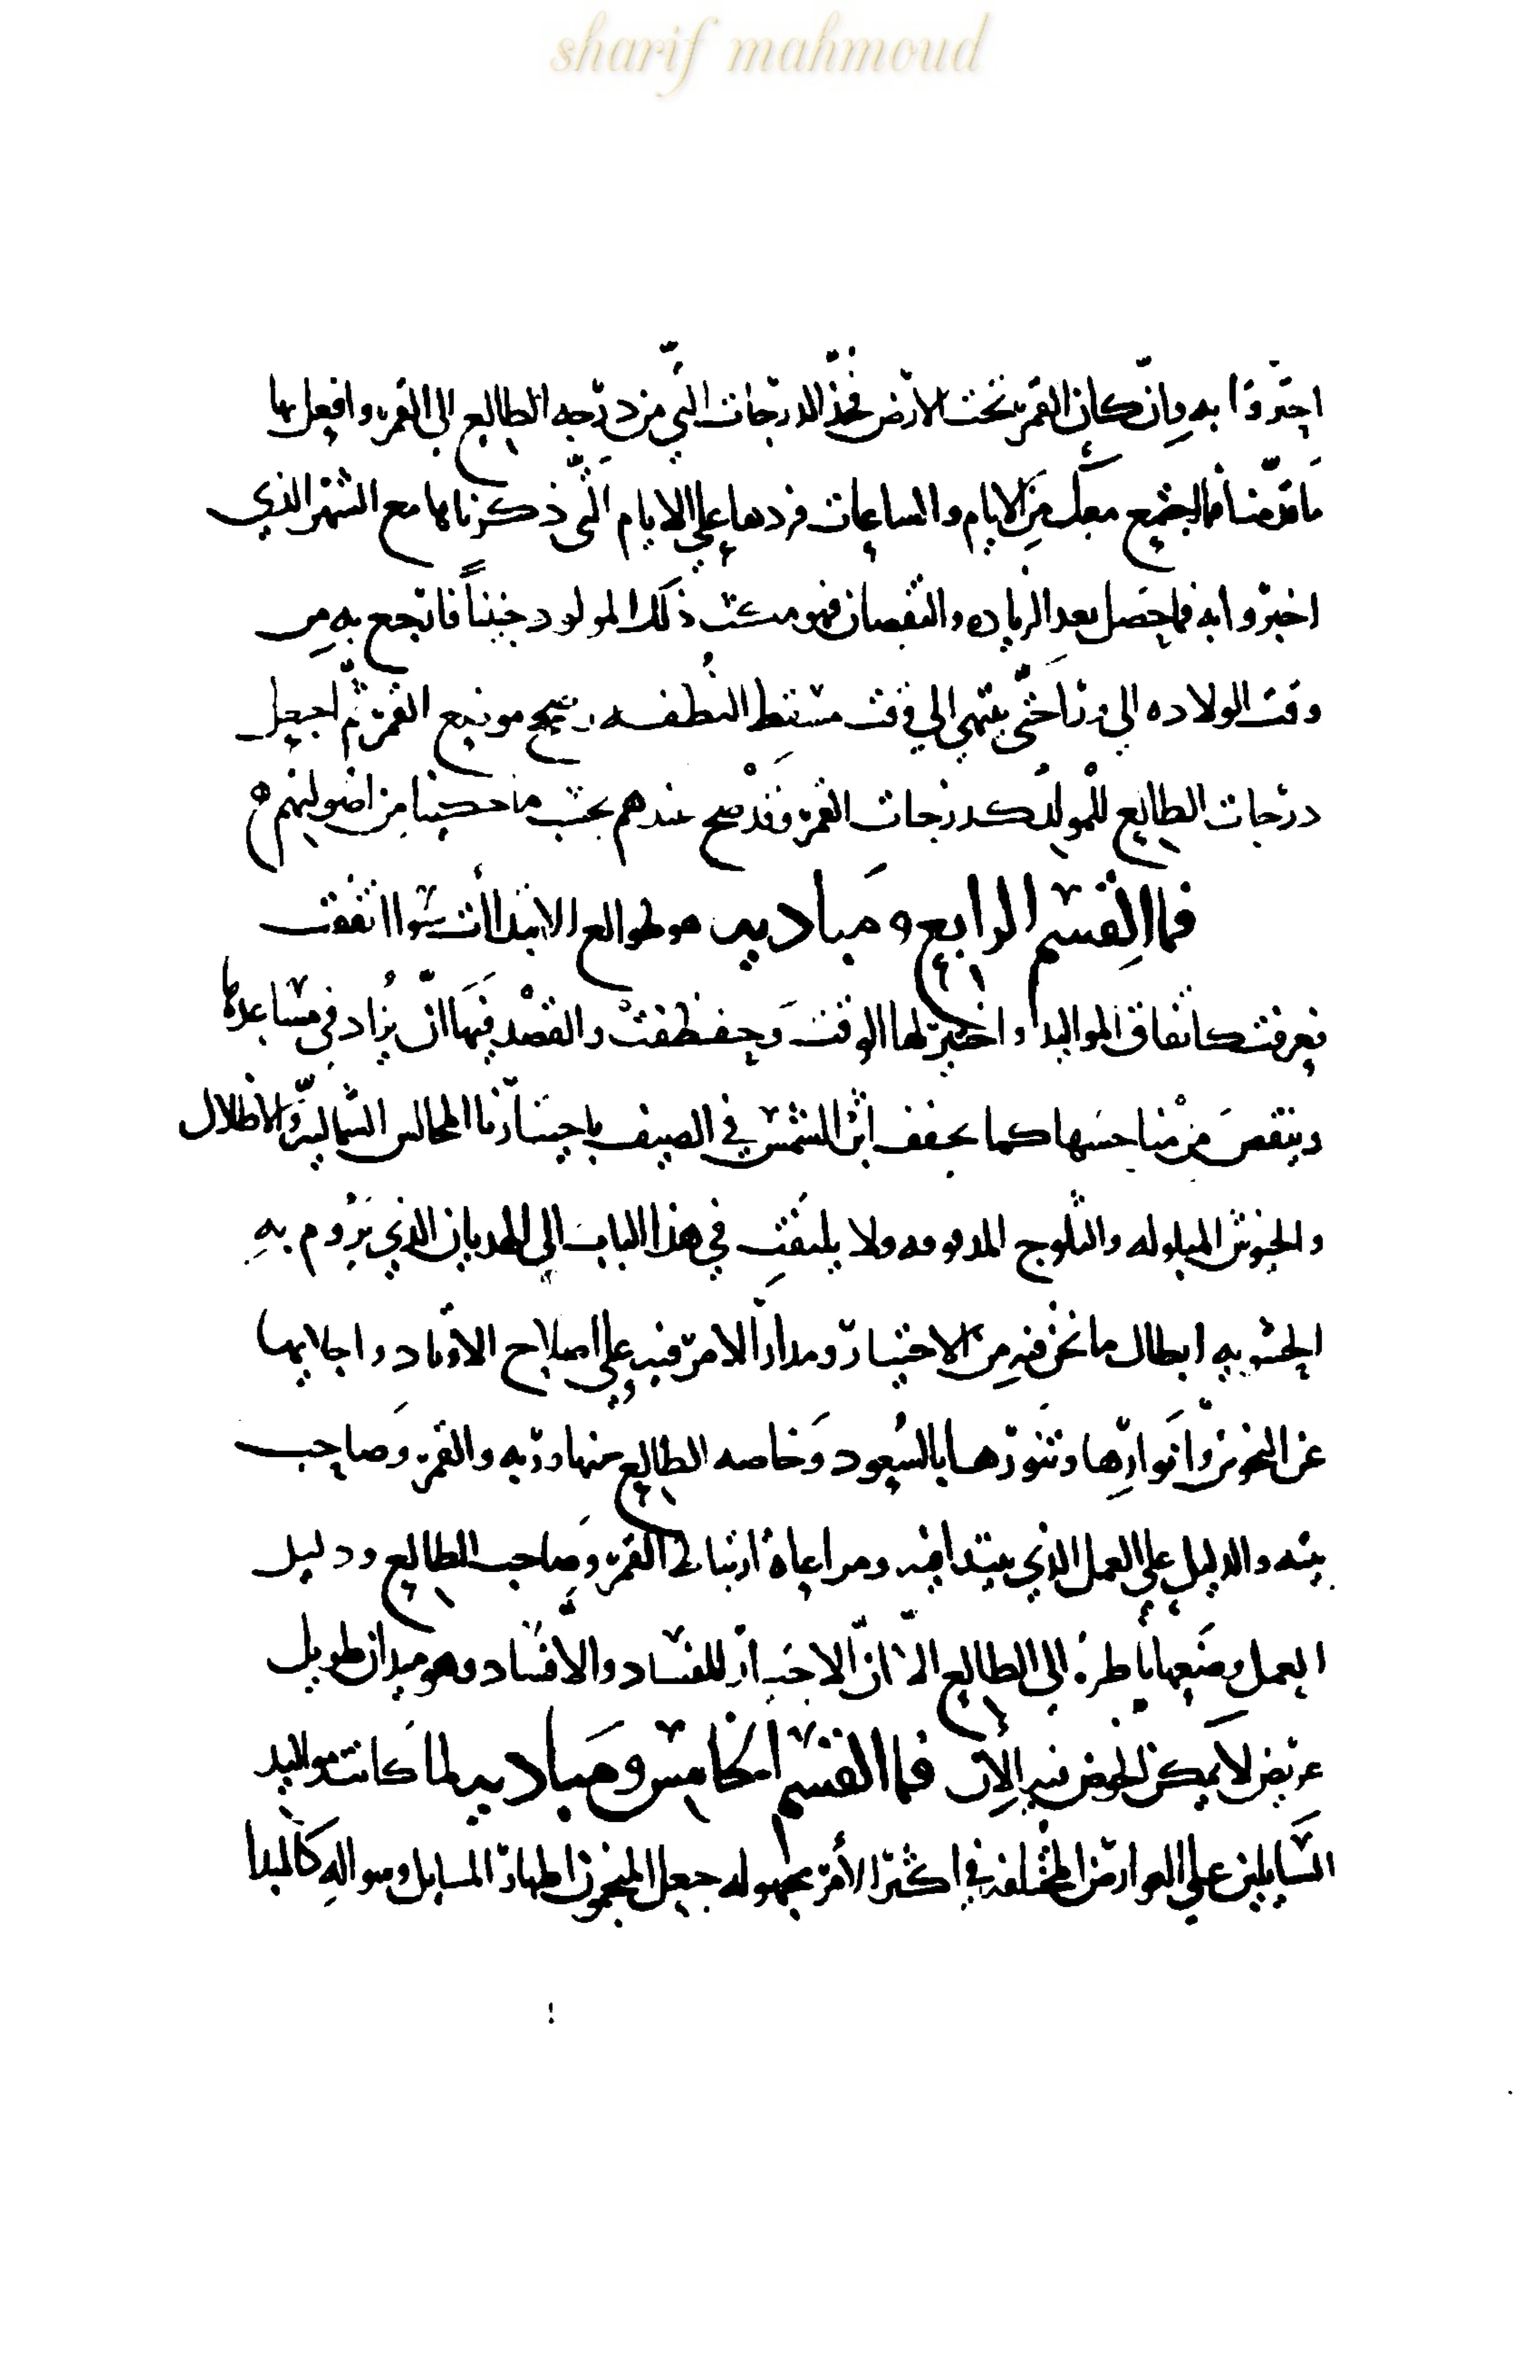 sharif mahmoud
اخبروا به وان كان القمر تحت الارض فخذ الدرجات التي من درجه الطالع الى القمر وافعل بها
ما قدمنا فما اجتمع معك من الايام والساعات فزدها على الايام التي ذكرناها مع الشهر الذي
اخبروا به فما حصل بعد الزياده والنقصان فهو مكث ذلك المولود جنيناً فارجع به من
وقت الولاده الى ورا حتى ينتهي الى وقت مسقط النطفه موضع القمر ثم اجعل
درجات الطالع للمولد كدرجات القمر فقد صح عندهم بحسب ما حكينا من اصولهم ه
فاما القسم الرابع ومباديه هو طوالع الابتداات سوا اتفقت
فعرفت كاتفاق المواليد او اختير لها الوقت وحفظت والقصد فيها ان يزاد في مساعدها
وينقص من مناحسها كما يخفف اثر الشمس في الصيف باختيارنا المجالس الشماليه والاظلال
والخيوش المبلوله والثلوج المدوفه ولا يلتفت في هذا الباب الى الهديان الذي يروم به
الحشويه ابطال ما نحن فيه من الاختيار ومدار الامر فيه على اصلاح الاوتاد واخلايها
عن النحوس وانوارها وتنورها بالسعود وخاصه الطالع منها وربه والقمر وصاحب
بيته والدليل على العمل الذي يبتدا فيه ومراعاة ارتباط القمر وصاحب الطالع ودليل
العمل وضعها ناظرة الى الطالع الا ان الاختيار للفساد والافساد وهو ميدان طويل
عريض لا يمكن الخوض فيه الان فاما القسم الخامس ومباديه لما كانت مواليد
السايلين على العوارض المختلفه في اكثر الأمر مجهوله جعل المنجمون اظهار المسايل وسواله كالمبدا